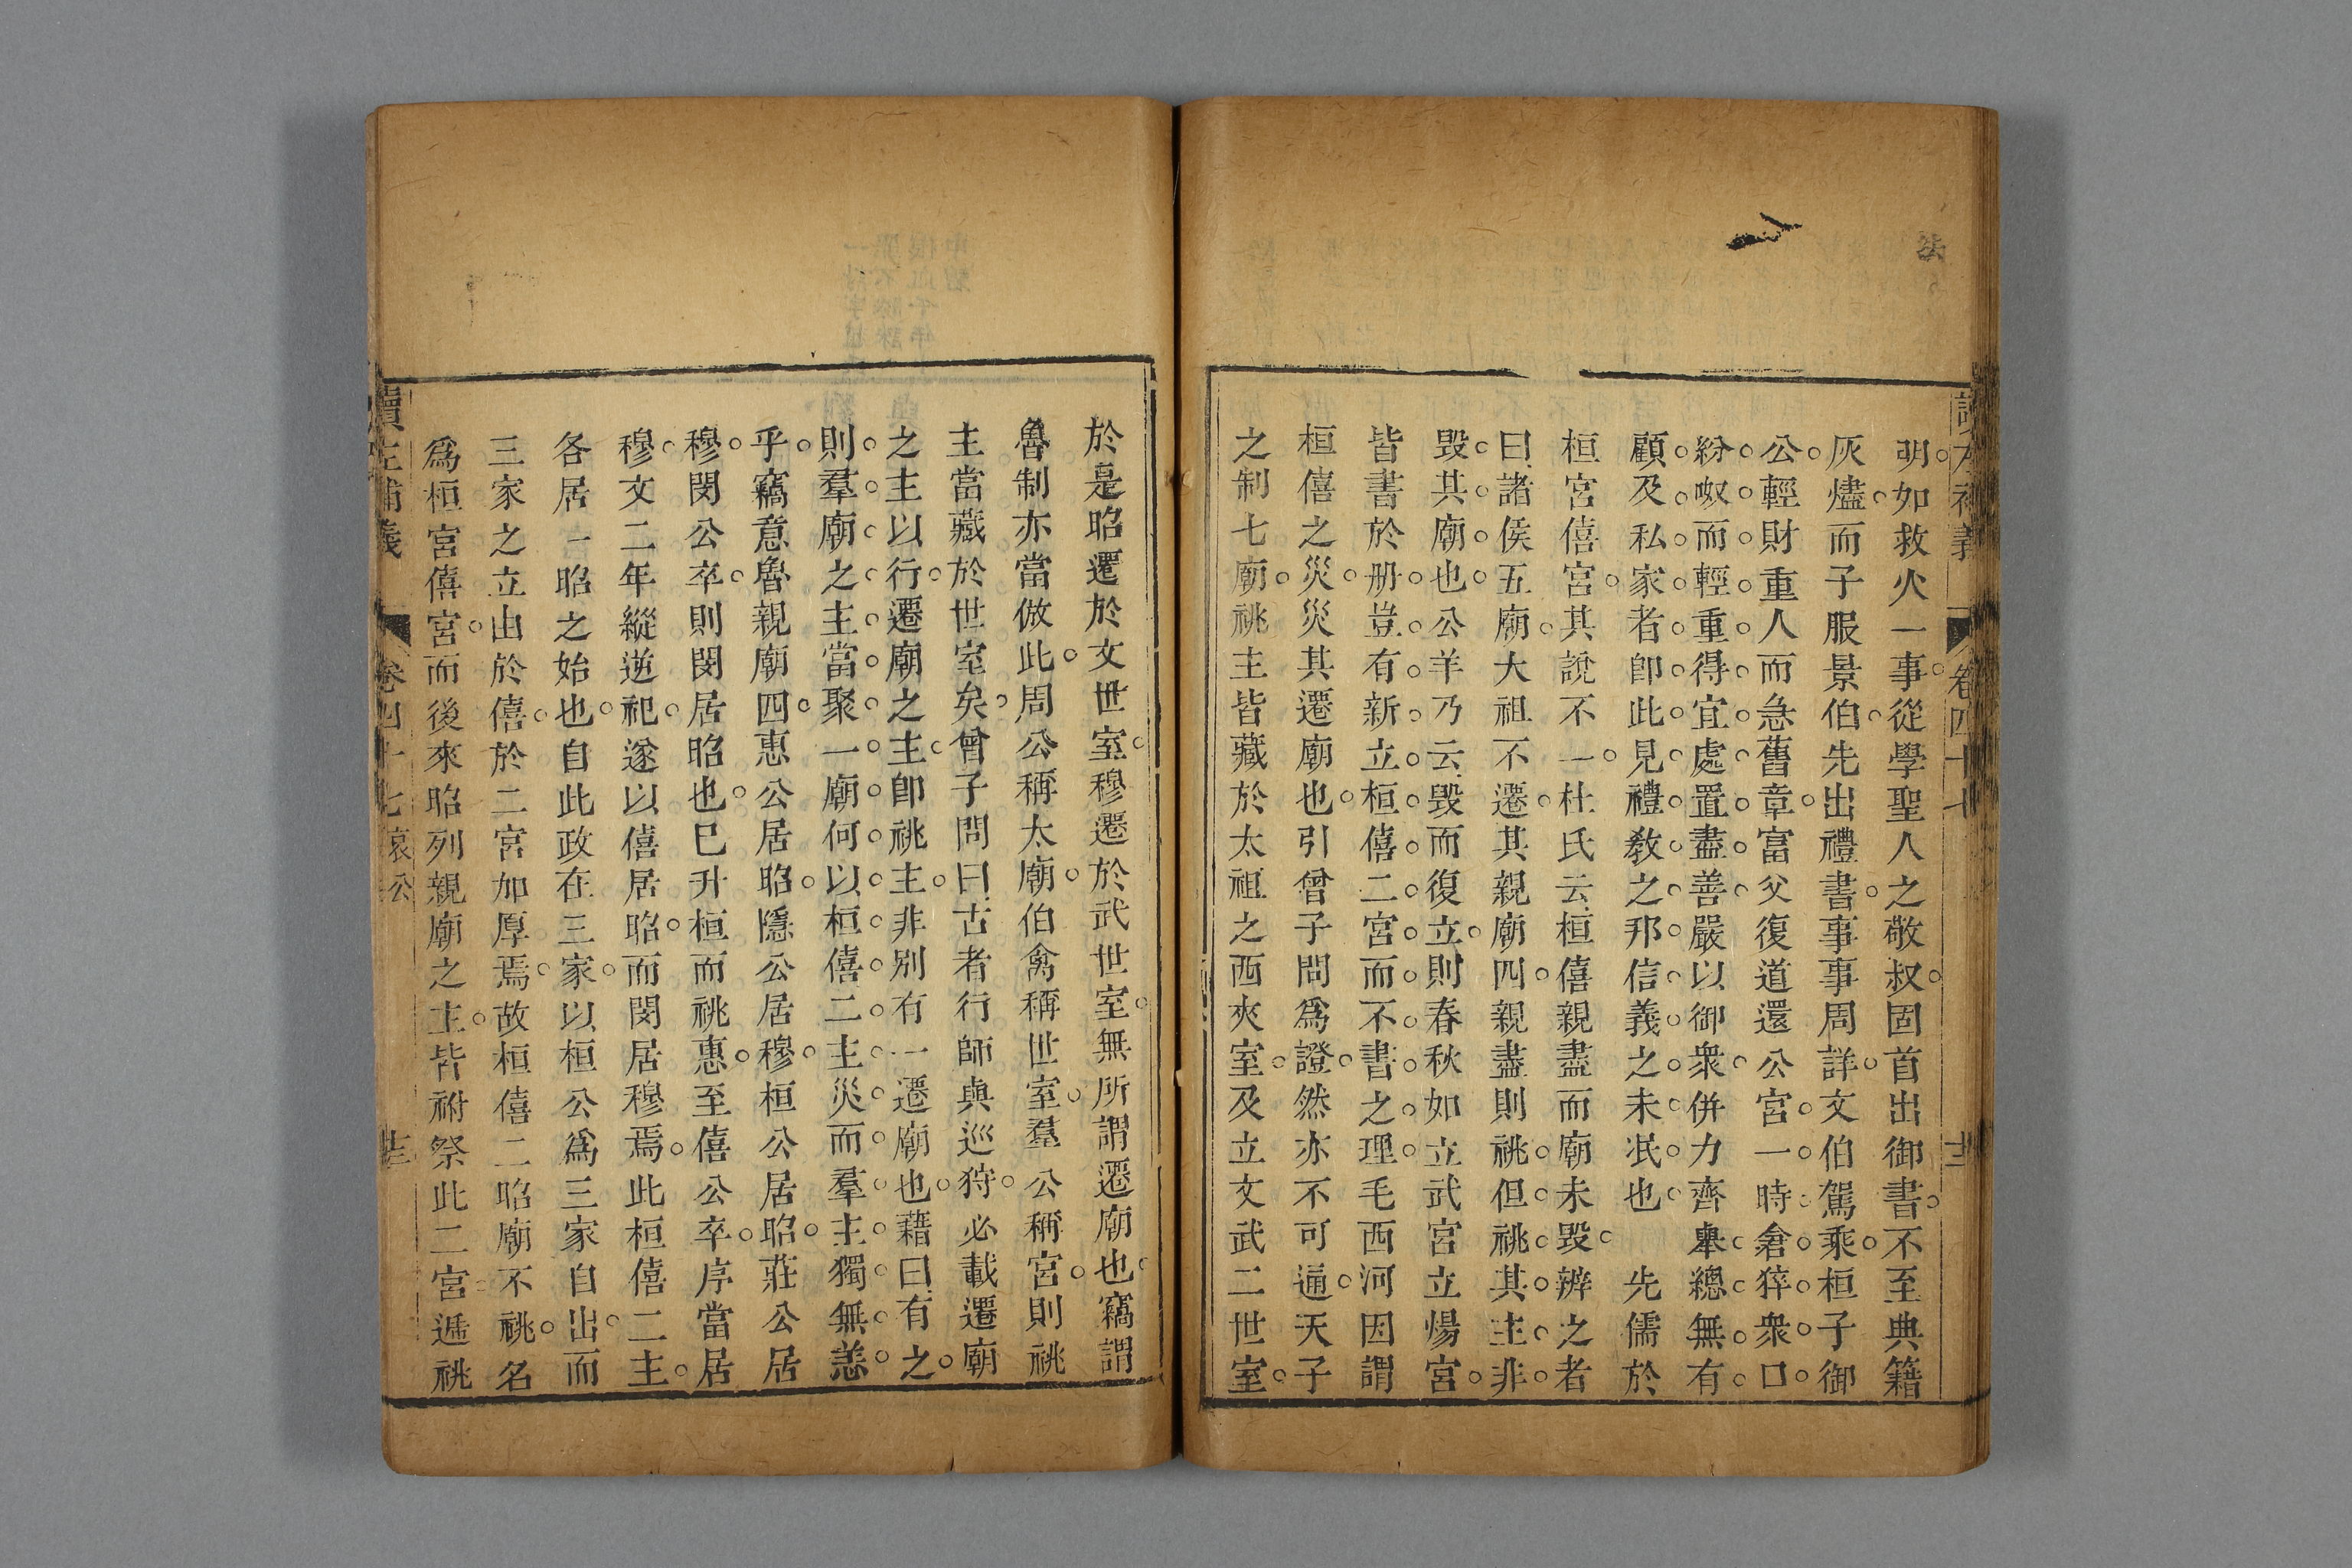 法
讀左補義 卷四十七 十二
明如救火一事從學聖人之敬叔固首出御書不至典籍
灰燼而子服景伯先出禮書事事周詳文伯駕乘桓子御
公輕財重人而急舊章富父復道還公宮一時倉猝衆口
紛呶而輕重得宜處置盡善嚴以御衆併力齊舉總無有
顧及私家者卽此見禮教之邦信義之未泯也 先儒於
桓宮僖宮其說不一杜氏云桓僖親盡而廟未毀辨之者
曰諸侯五廟大祖不遷其親廟四親盡則祧但祧其主非
毀其廟也公羊乃云毀而復立則春秋如立武宮立煬宮
皆書於册豈有新立桓僖二宮而不書之理毛西河因謂
桓僖之災災其遷廟也引曾子問為證然亦不可通天子
之制七廟祧主皆藏於太祖之西夾室及立文武二世室
於是昭遷於文世室穆遷於武世室無所謂遷廟也竊謂
魯制亦當倣此周公稱太廟伯禽稱世室羣公稱宮則祧
主當藏於世室矣曾子問曰古者行師與巡狩必載遷廟
之主以行遷廟之主卽祧主非別有一遷廟也藉曰有之
則羣廟之主當聚一廟何以桓僖二主災而羣主獨無恙
乎竊意魯親廟四惠公居昭隱公居穆桓公居昭莊公居
穆閔公卒則閔居昭也巳升桓而祧惠至僖公卒序當居
穆文二年縱逆祀遂以僖居昭而閔居穆焉此桓僖二主
各居一昭之始也自此政在三家以桓公爲三家自出而
三家之立由於僖於二宮加厚焉故桓僖二昭廟不祧名
爲桓宮僖宮而後來昭列親廟之主皆祔祭此二宮遞祧
讀左補義 卷四十七 哀公 十三